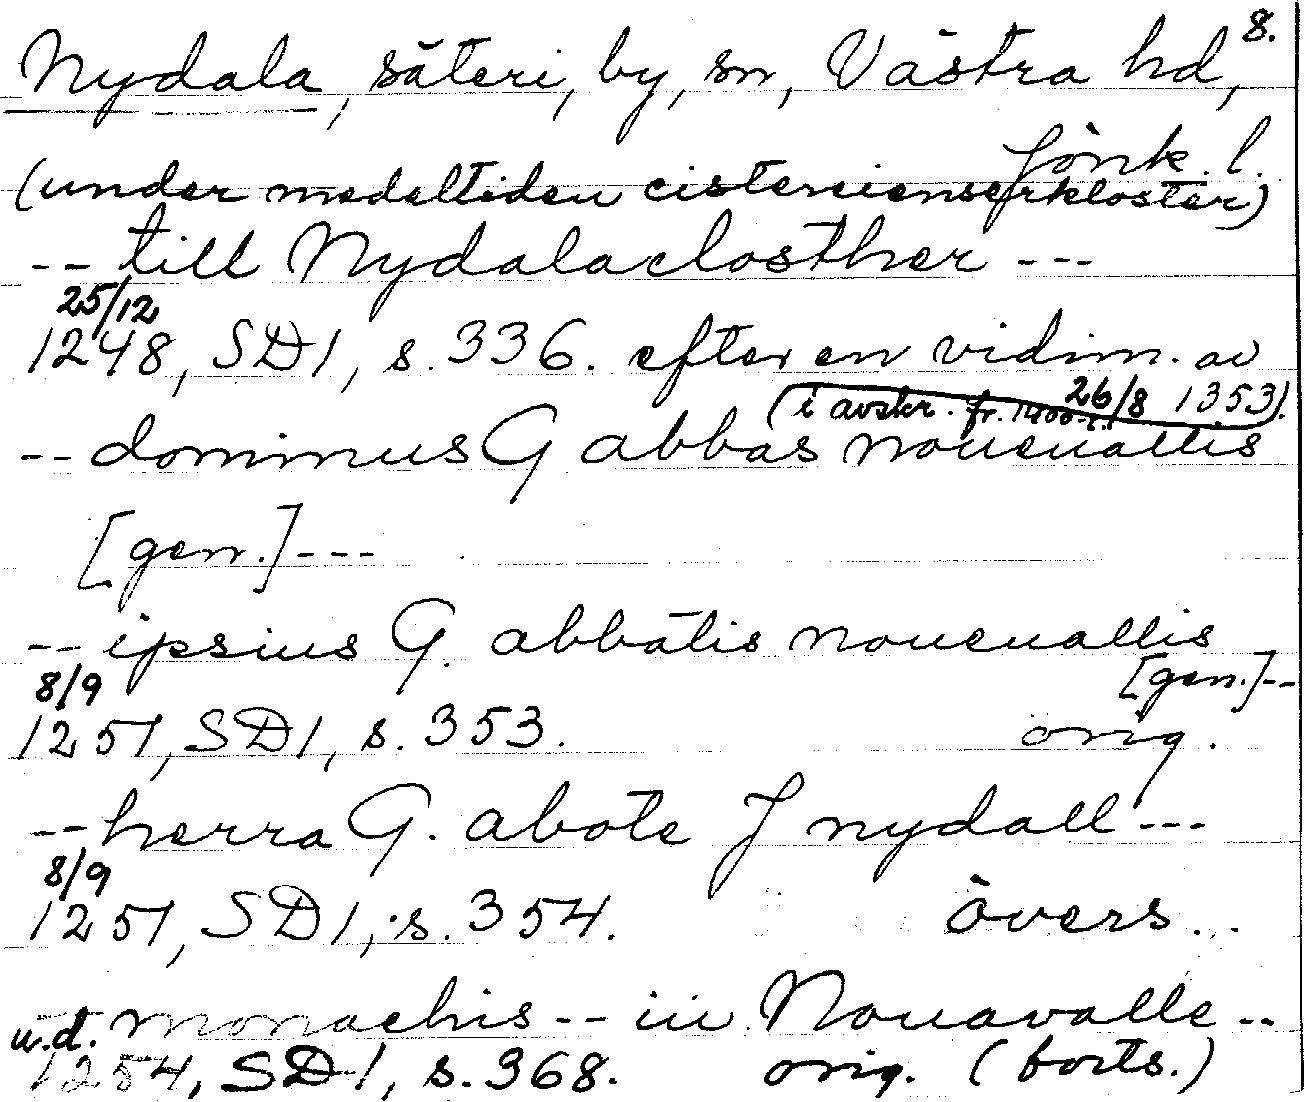 8.
Nydala, säteri, by, sn, Västra hd,
Jönk. l.
(under medeltiden cistercienserkloster)
-- till Nydalaclosther ---
25/12
1248, SD1, s. 336. efter en vidim. av
26/8 1353).
(i avskr. fr. 1400-t.)
-- dominus G abbas noueuallis
[gen.] ---
-- ipsius G. abbatis noueuallis
[gen.]--
8/9
1251, SD1, s. 353. orig.
-- herra G. abote J nydall ---
8/9
1251, SD1, s. 354. övers..
u.d. monachis -- in Nouavalle --
1254, SD1, s. 368. orig. (forts.)